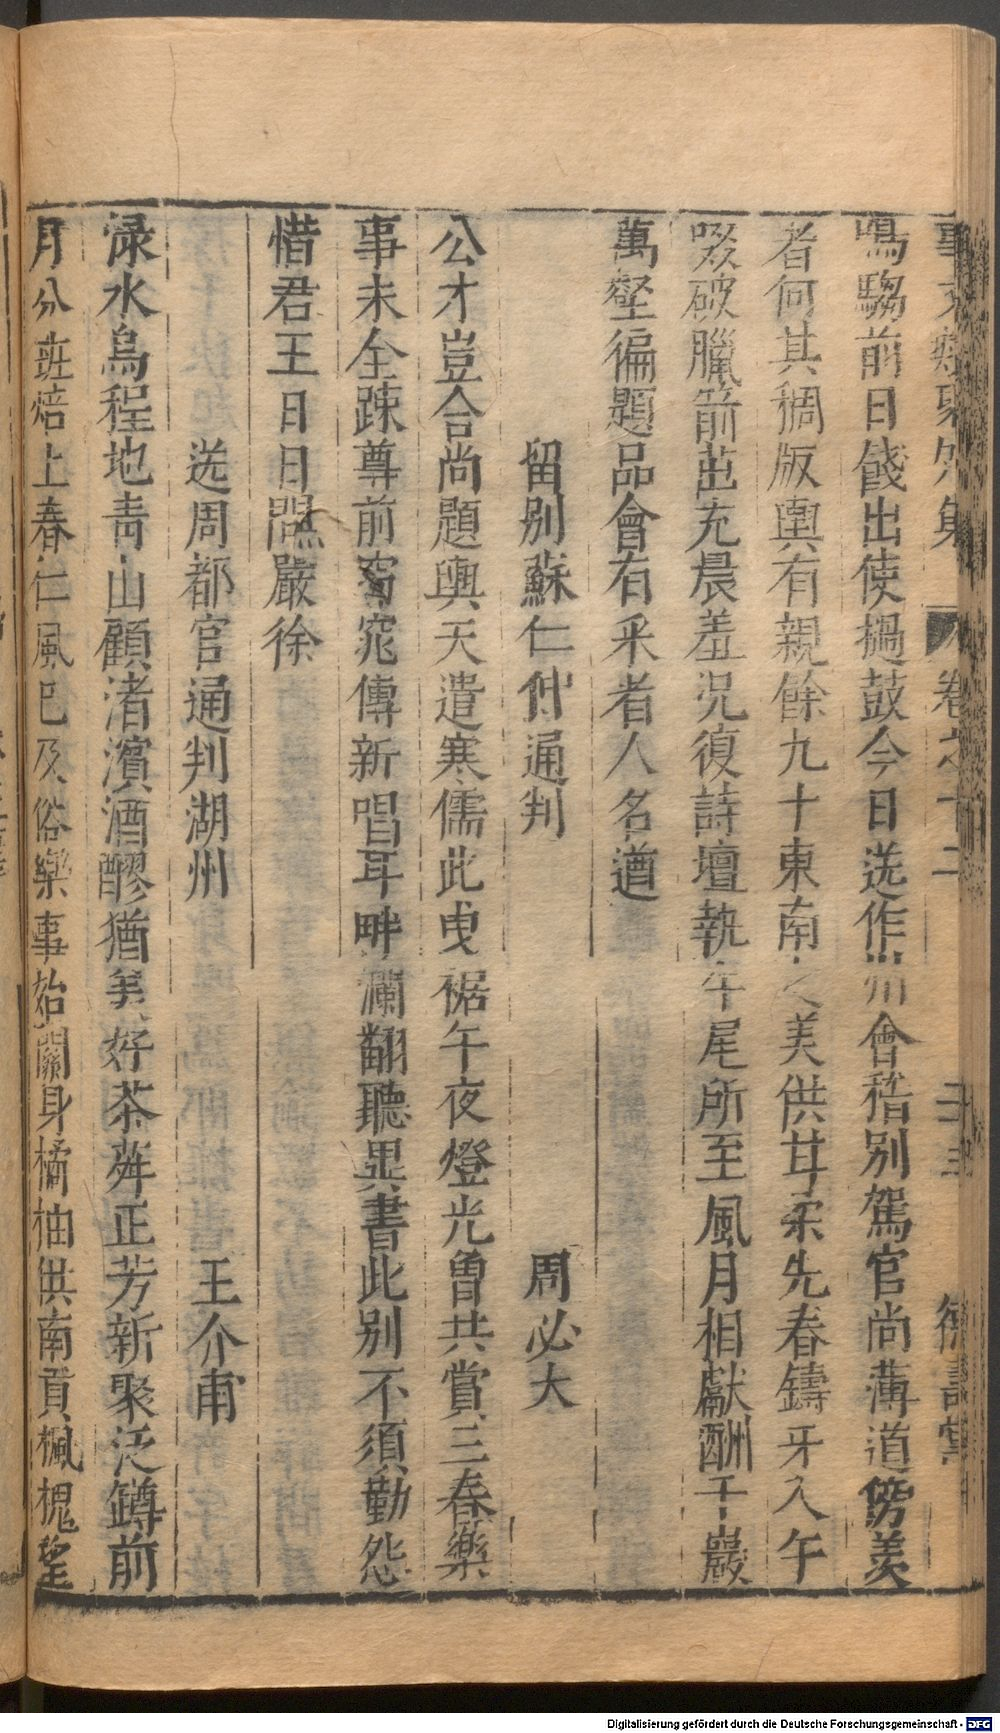 鳴騶前日餞出使撾鼓今日送作州會稽別駕官尚薄道傍羡
者何其稠版輿有親餘九十東南之美供甘柔先春鑄牙入午
啜破臘箭茁充晨羞況復詩壇執牛尾所至風月相獻酬千巖
萬壑徧題品會有采者人名遒
留别蘇仁仲通判 周必大
公才豈合尚題輿天遣寒儒此曳裾午夜燈光曽共賞三春藥
事未全踈尊前窈窕傳新唱耳畔瀾翻聽異書此别不須勤怨
惜君王日日問嚴徐
送周都官通判湖州 王介甫
渌水烏程地青山顧渚濱酒醪猶美好茶荈正芳新聚泛罇前
月分班焙上春仁風已及俗樂事始關身橘柚供南貢楓槐望
Digitalisierung gefördert durch die Deutsche Forschungsgemeinschaft - DFG